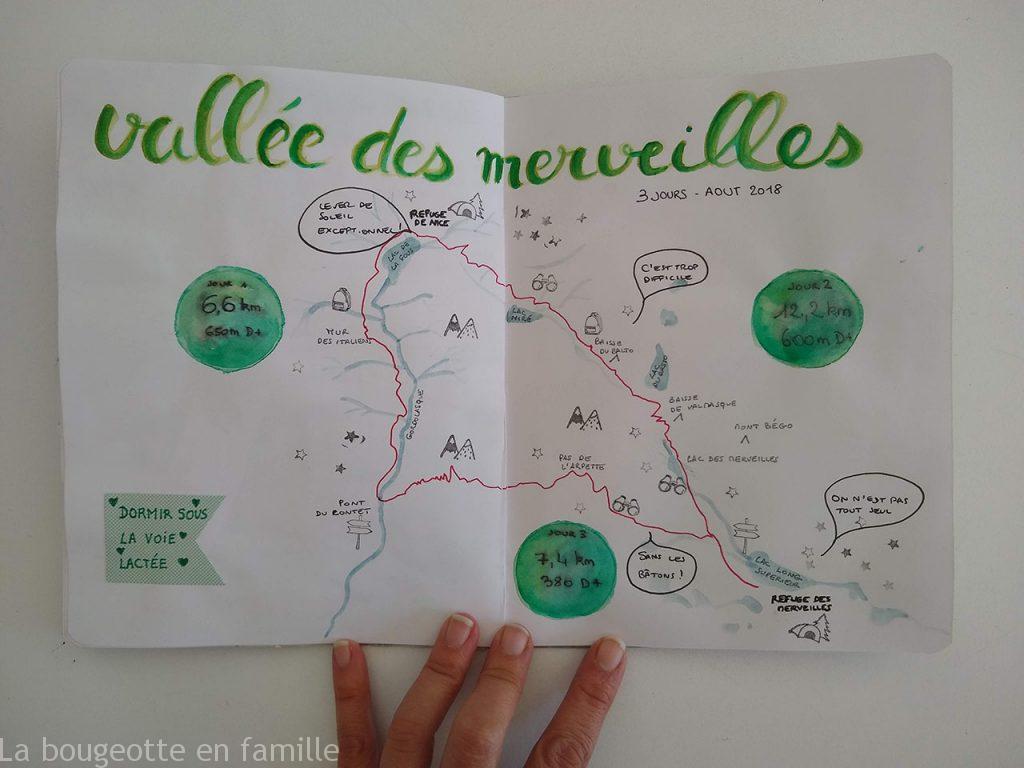 vallée des merveilles
3 JOURS - AOUT 2018
LEVER DE
SOLEIL
EXCEPTIONNEL!
REFUGE
DE NICE
LAC DE
LA FOUS
C'EST TROP
DIFFICILE
JOUR 1
6,6 km
650m D+
JOUR 2
12,2 km
600m D+
LAC
NIRÉ
MUR
DES ITALIENS
BAISSE
DU BASTO
LAC
DU BASTO
GORDOLASQUE
BAISSE
DE VALMASQUE
MONT BÉGO
PAS DE
L'ARPETTE
LAC DES MERVEILLES
PONT
DU COUNTET
ON N'EST PAS
TOUT SEUL
DORMIR SOUS
LA VOIE
LACTÉE
JOUR 3
7,4 km
380 D+
SANS LES
BÂTONS!
LAC LONG
SUPERIEUR
REFUGE DES
MERVEILLES
La bougeotte en famille